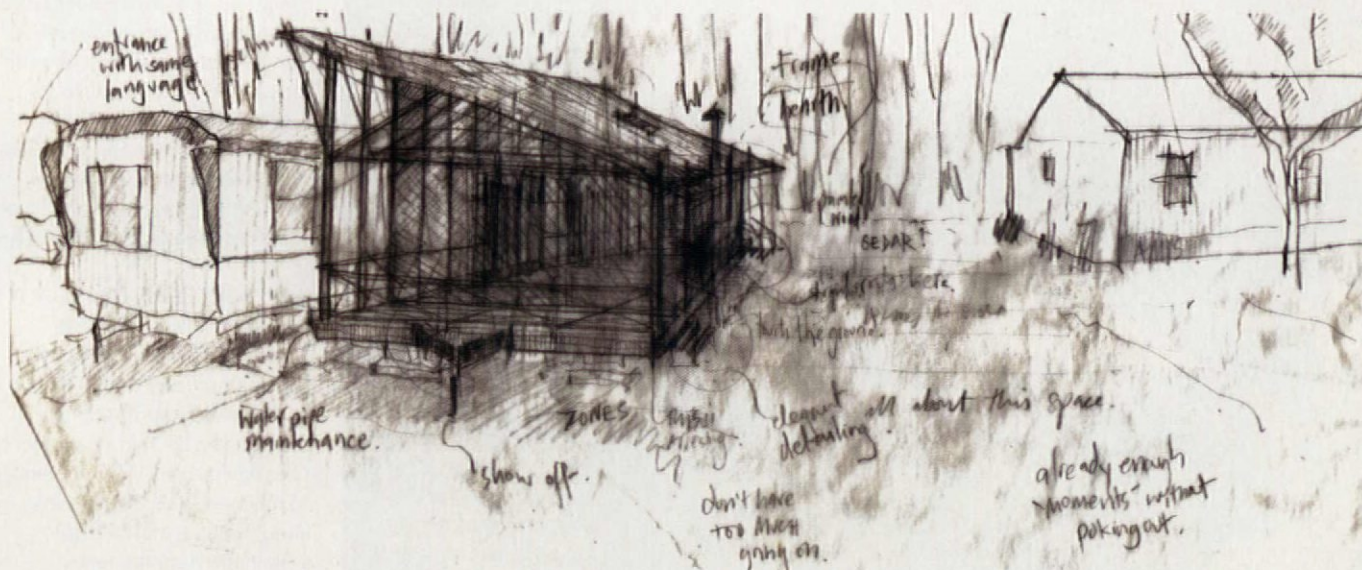 entrance
with same
language.
Frame
hearth.
CEDAR?
here.
with the ground.
Water pipe
maintenance.
show off.
ZONES
elegant
detailing.
all about this space.
don't have
too much
going on.
already enough
"moments" without
poking out.